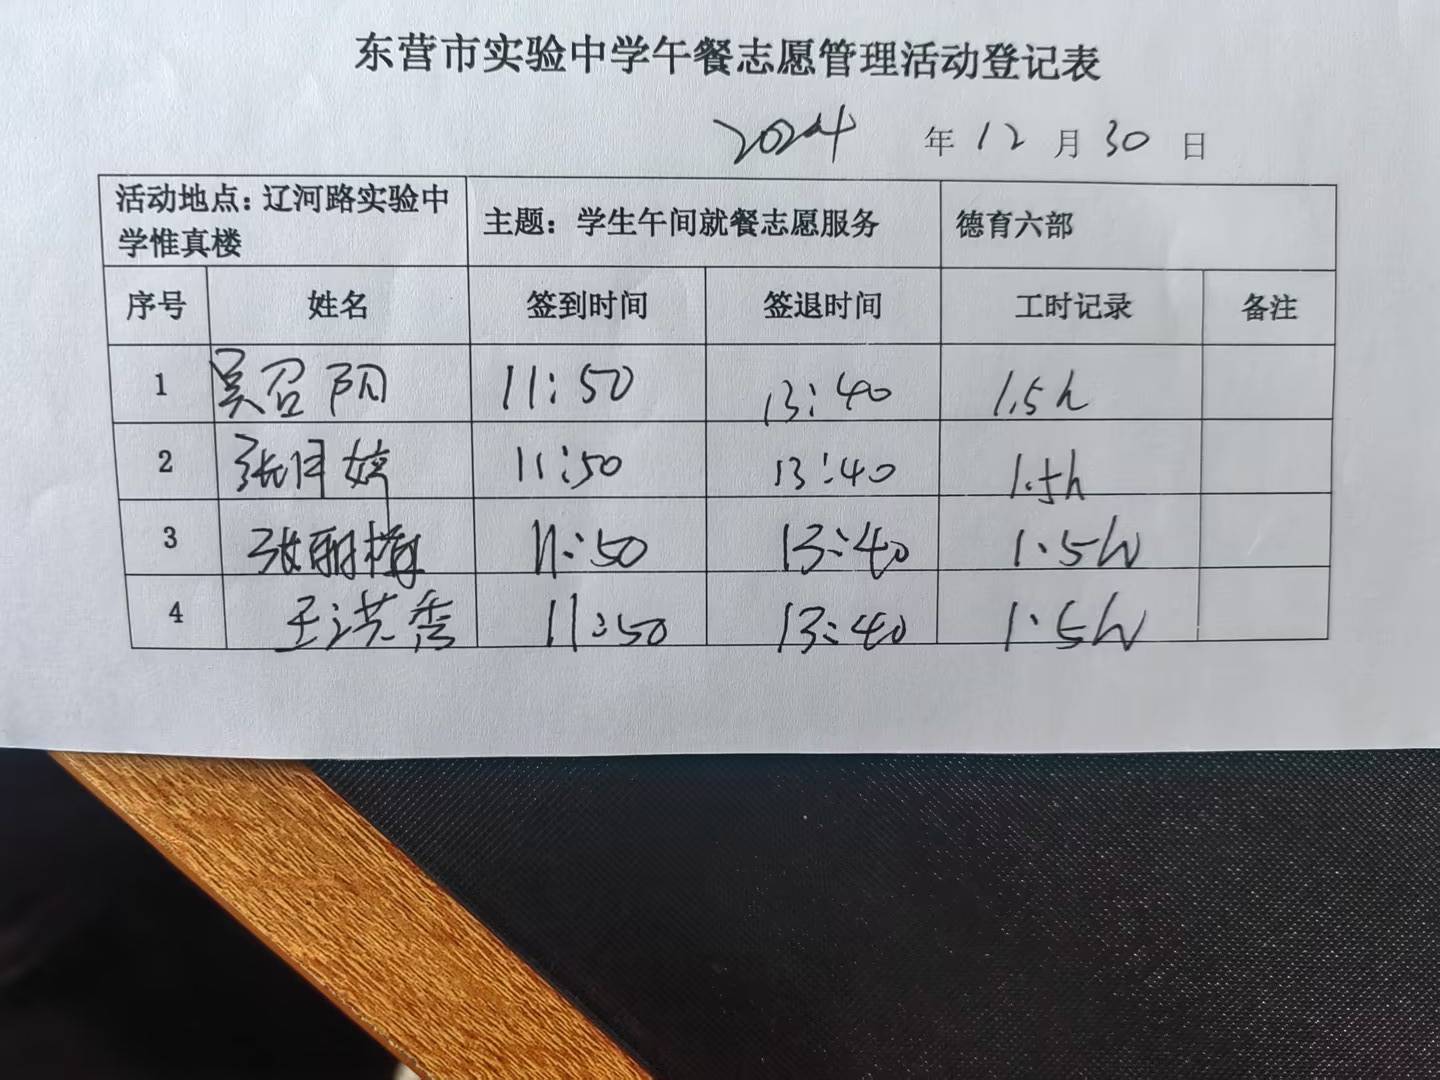 东营市实验中学午餐志愿管理活动登记表
2024 年 12 月 30 日
活动地点：辽河路实验中
学惟真楼
主题：学生午间就餐志愿服务
德育六部
序号 姓名 签到时间 签退时间 工时记录 备注
1 吴召阳 11:50 13:40 1.5h
2 张月婷 11:50 13:40 1.5h
3 张丽梅 11:50 13:40 1.5h
4 王洪秀 11:50 13:40 1.5h